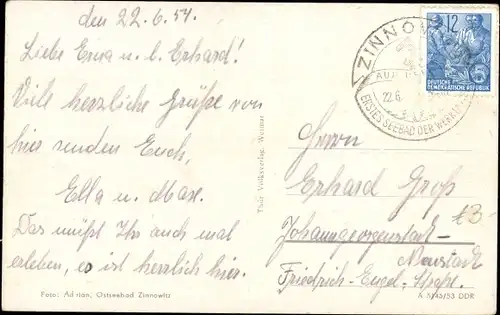 den 22.6.54.
Liebe Erna u. l. Erhard!
Viele herzliche Grüße von
hier senden Euch,
Ella u. Max.
Das müßt Ihr auch mal
erleben, es ist herzlich hier.
Foto: Adrian, Ostseebad Zinnowitz
Thür Volksverlag, Weimar
12
DEUTSCHE
DEMOKRATISCHE REPUBLIK
ZINNO
AU
22.6.
ERSTES SEEBAD DER WERK
Herrn
Erhard Groß
Johanngeorgenstadt-
Neustadt
Friedrich-Engel-Straße.
A 5145/53 DDR